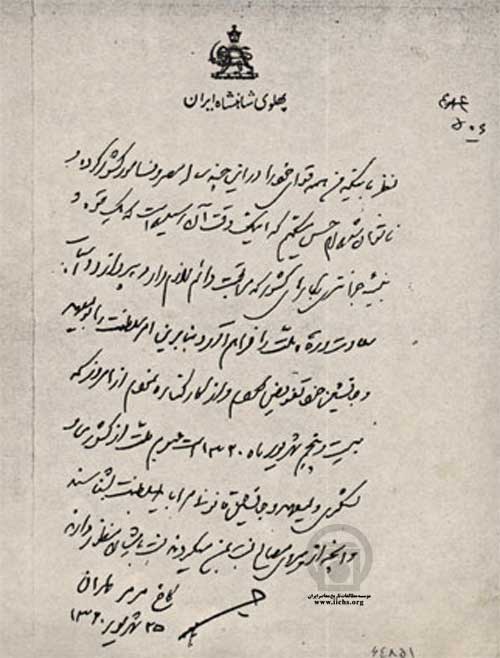 پهلوی شاهنشاه ایران
۶۸۴
۵۰۶
نظر باینکه من همه قوای خود را در این چند ساله مصروف امور کشور کرده و
ناتوان شده‌ام حس میکنم که اینک وقت آن رسیده است که یک قوه و
بنیه جوانتری بکارهای کشور که مراقبت دائم لازم دارد بپردازد و اسباب
سعادت و رفاه ملت را فراهم آورد بنابراین امور سلطنت را بولیعهد
و جانشین خود تفویض کردم و از کار کناره نمودم از امروز که
بیست و پنج شهریور ماه ۱۳۲۰ است عموم ملت از کشوری و
لشگری ولیعهد و جانشین قانونی مرا باید بسلطنت بشناسند
و آنچه از پیروی مصالح کشور نسبت بمن میکردند نسبت بایشان منظور دارند
کاخ مرمر طهران
۲۵ شهریور ۱۳۲۰
موسسه مطالعات تاریخ معاصر ایران
www.iichs.org